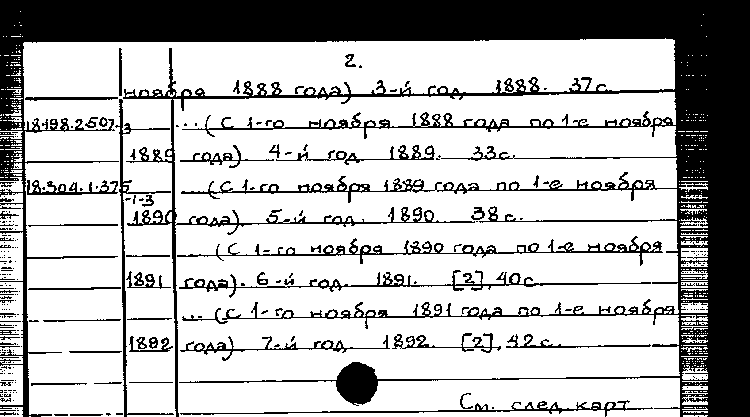 2.
ноября 1888 года) 3-й год. 1888. 37с.
18.198.2.507.-3 ...(С 1-го ноября 1888 года по 1-е ноября
1889 года). 4-й год. 1889. 33с.
18.304.1.375-1-3 ...(С 1-го ноября 1889 года по 1-е ноября
1890 года). 5-й год. 1890. 38с.
...(С 1-го ноября 1890 года по 1-е ноября
1891 года). 6-й год. 1891. [2], 40с.
...(С 1-го ноября 1891 года по 1-е ноября
1892 года) 7-й год. 1892. [2], 42с.
См. след. карт